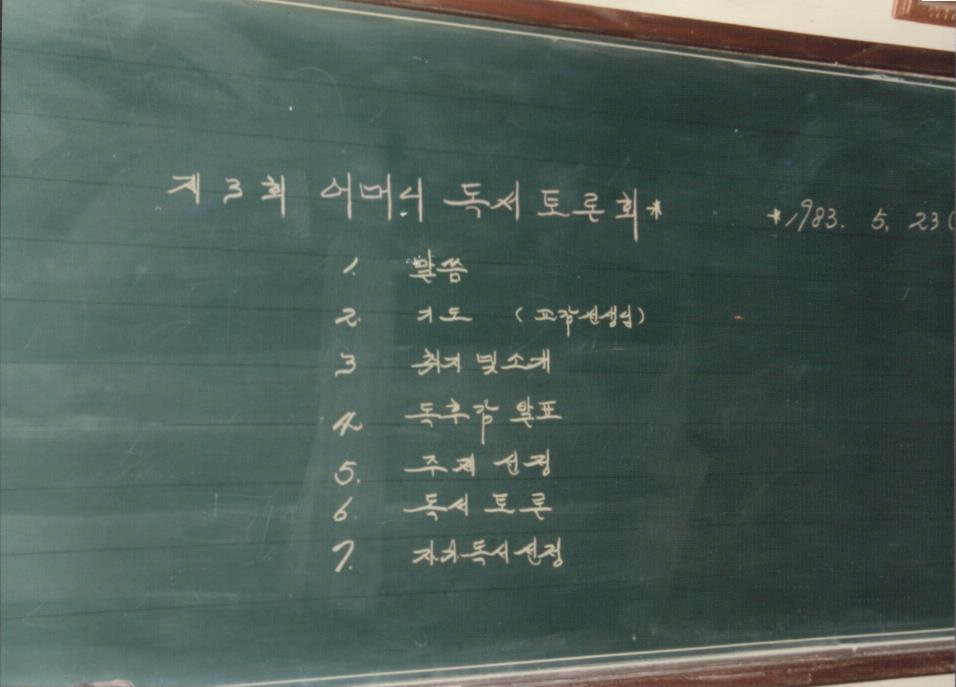 제 3 회 어머니 독서 토론회* *1983. 5. 23(
1. 말씀
2. 기도 (교장선생님)
3 취지 및 소개
4. 독후감 발표
5. 주제 선정
6. 독서 토론
7. 차기독서선정